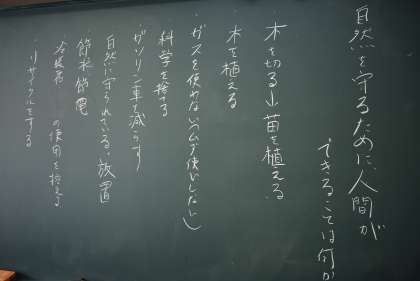 自然を守るために、人間が
できることは何か
・木を切る→苗を植える
・木を植える
・ガスを使わない(ムダ使いしない)
・科学を捨てる
・ガソリン車を減らす
・自然に守られている。放置
・節水 節電
・冷暖房 の使用を控える
・リサイクルをする